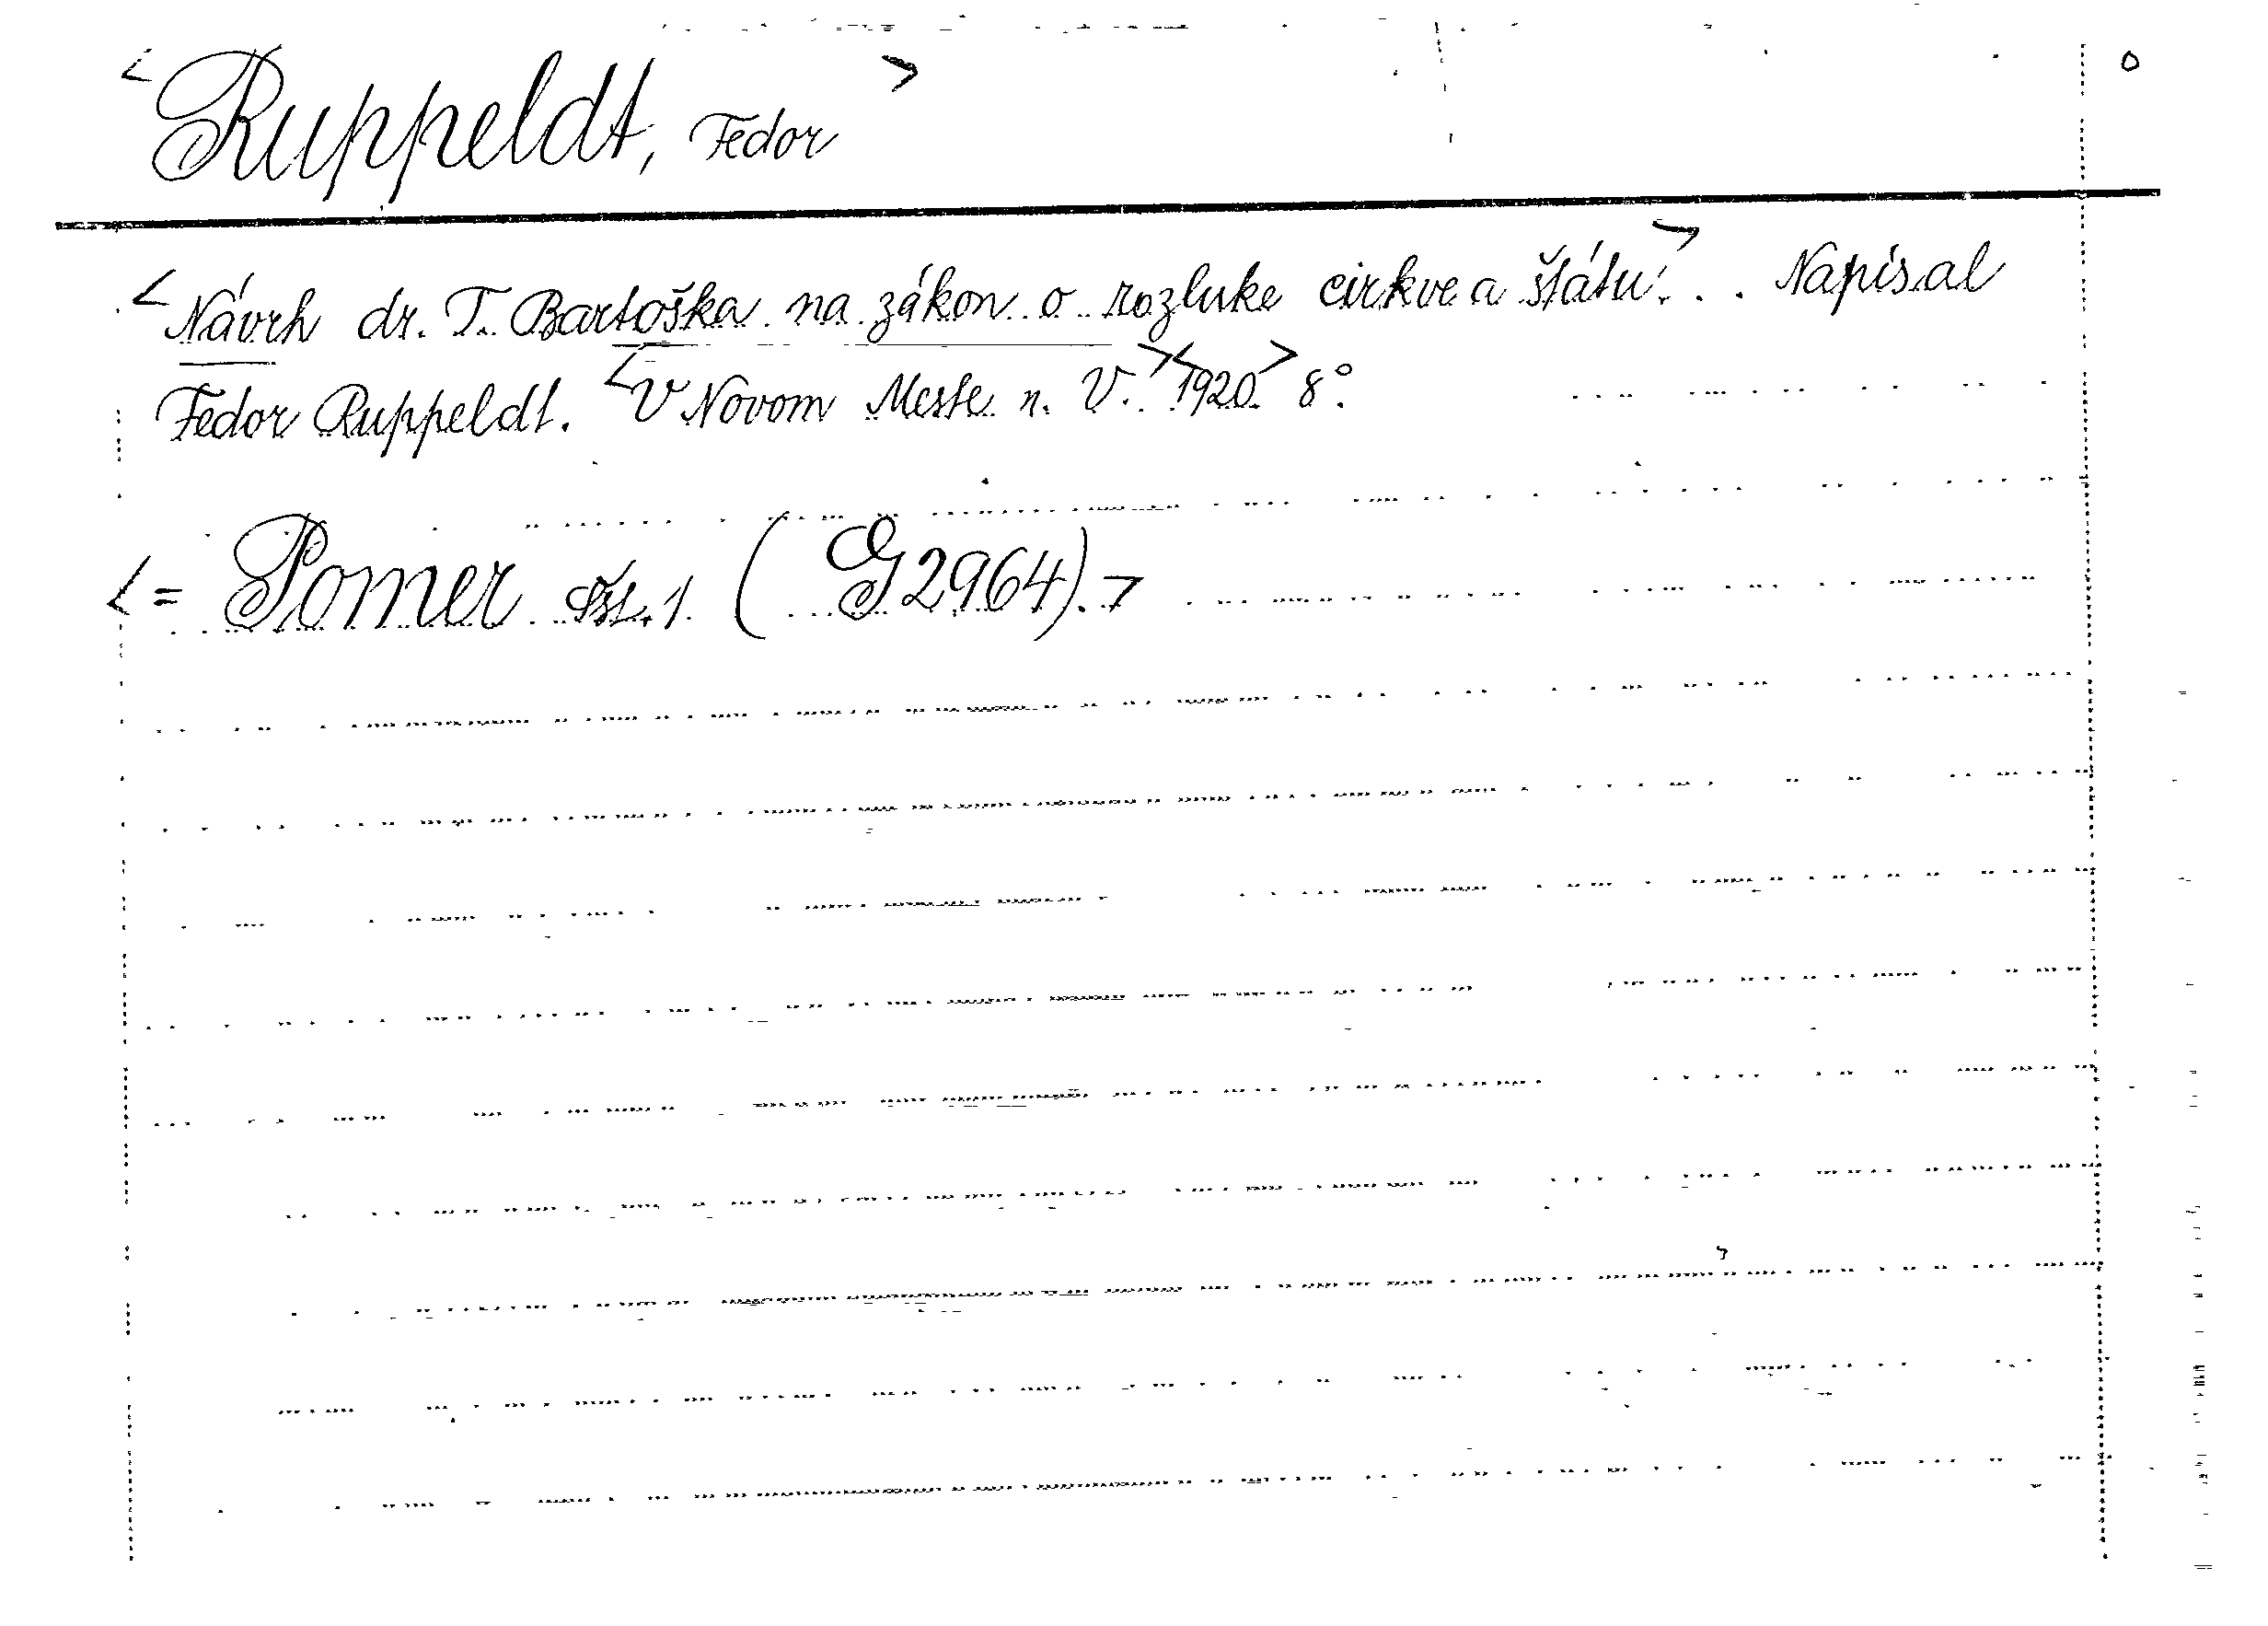 <Ruppeldt, Fedor>
<Návrh dr. T. Bartoška na zákon o rozluke cirkve a štátu.>.. Napísal
Fedor Ruppeldt. <V Novom Meste n. V.><1920> 8°.
<= Pomer 1 (G 2964).>